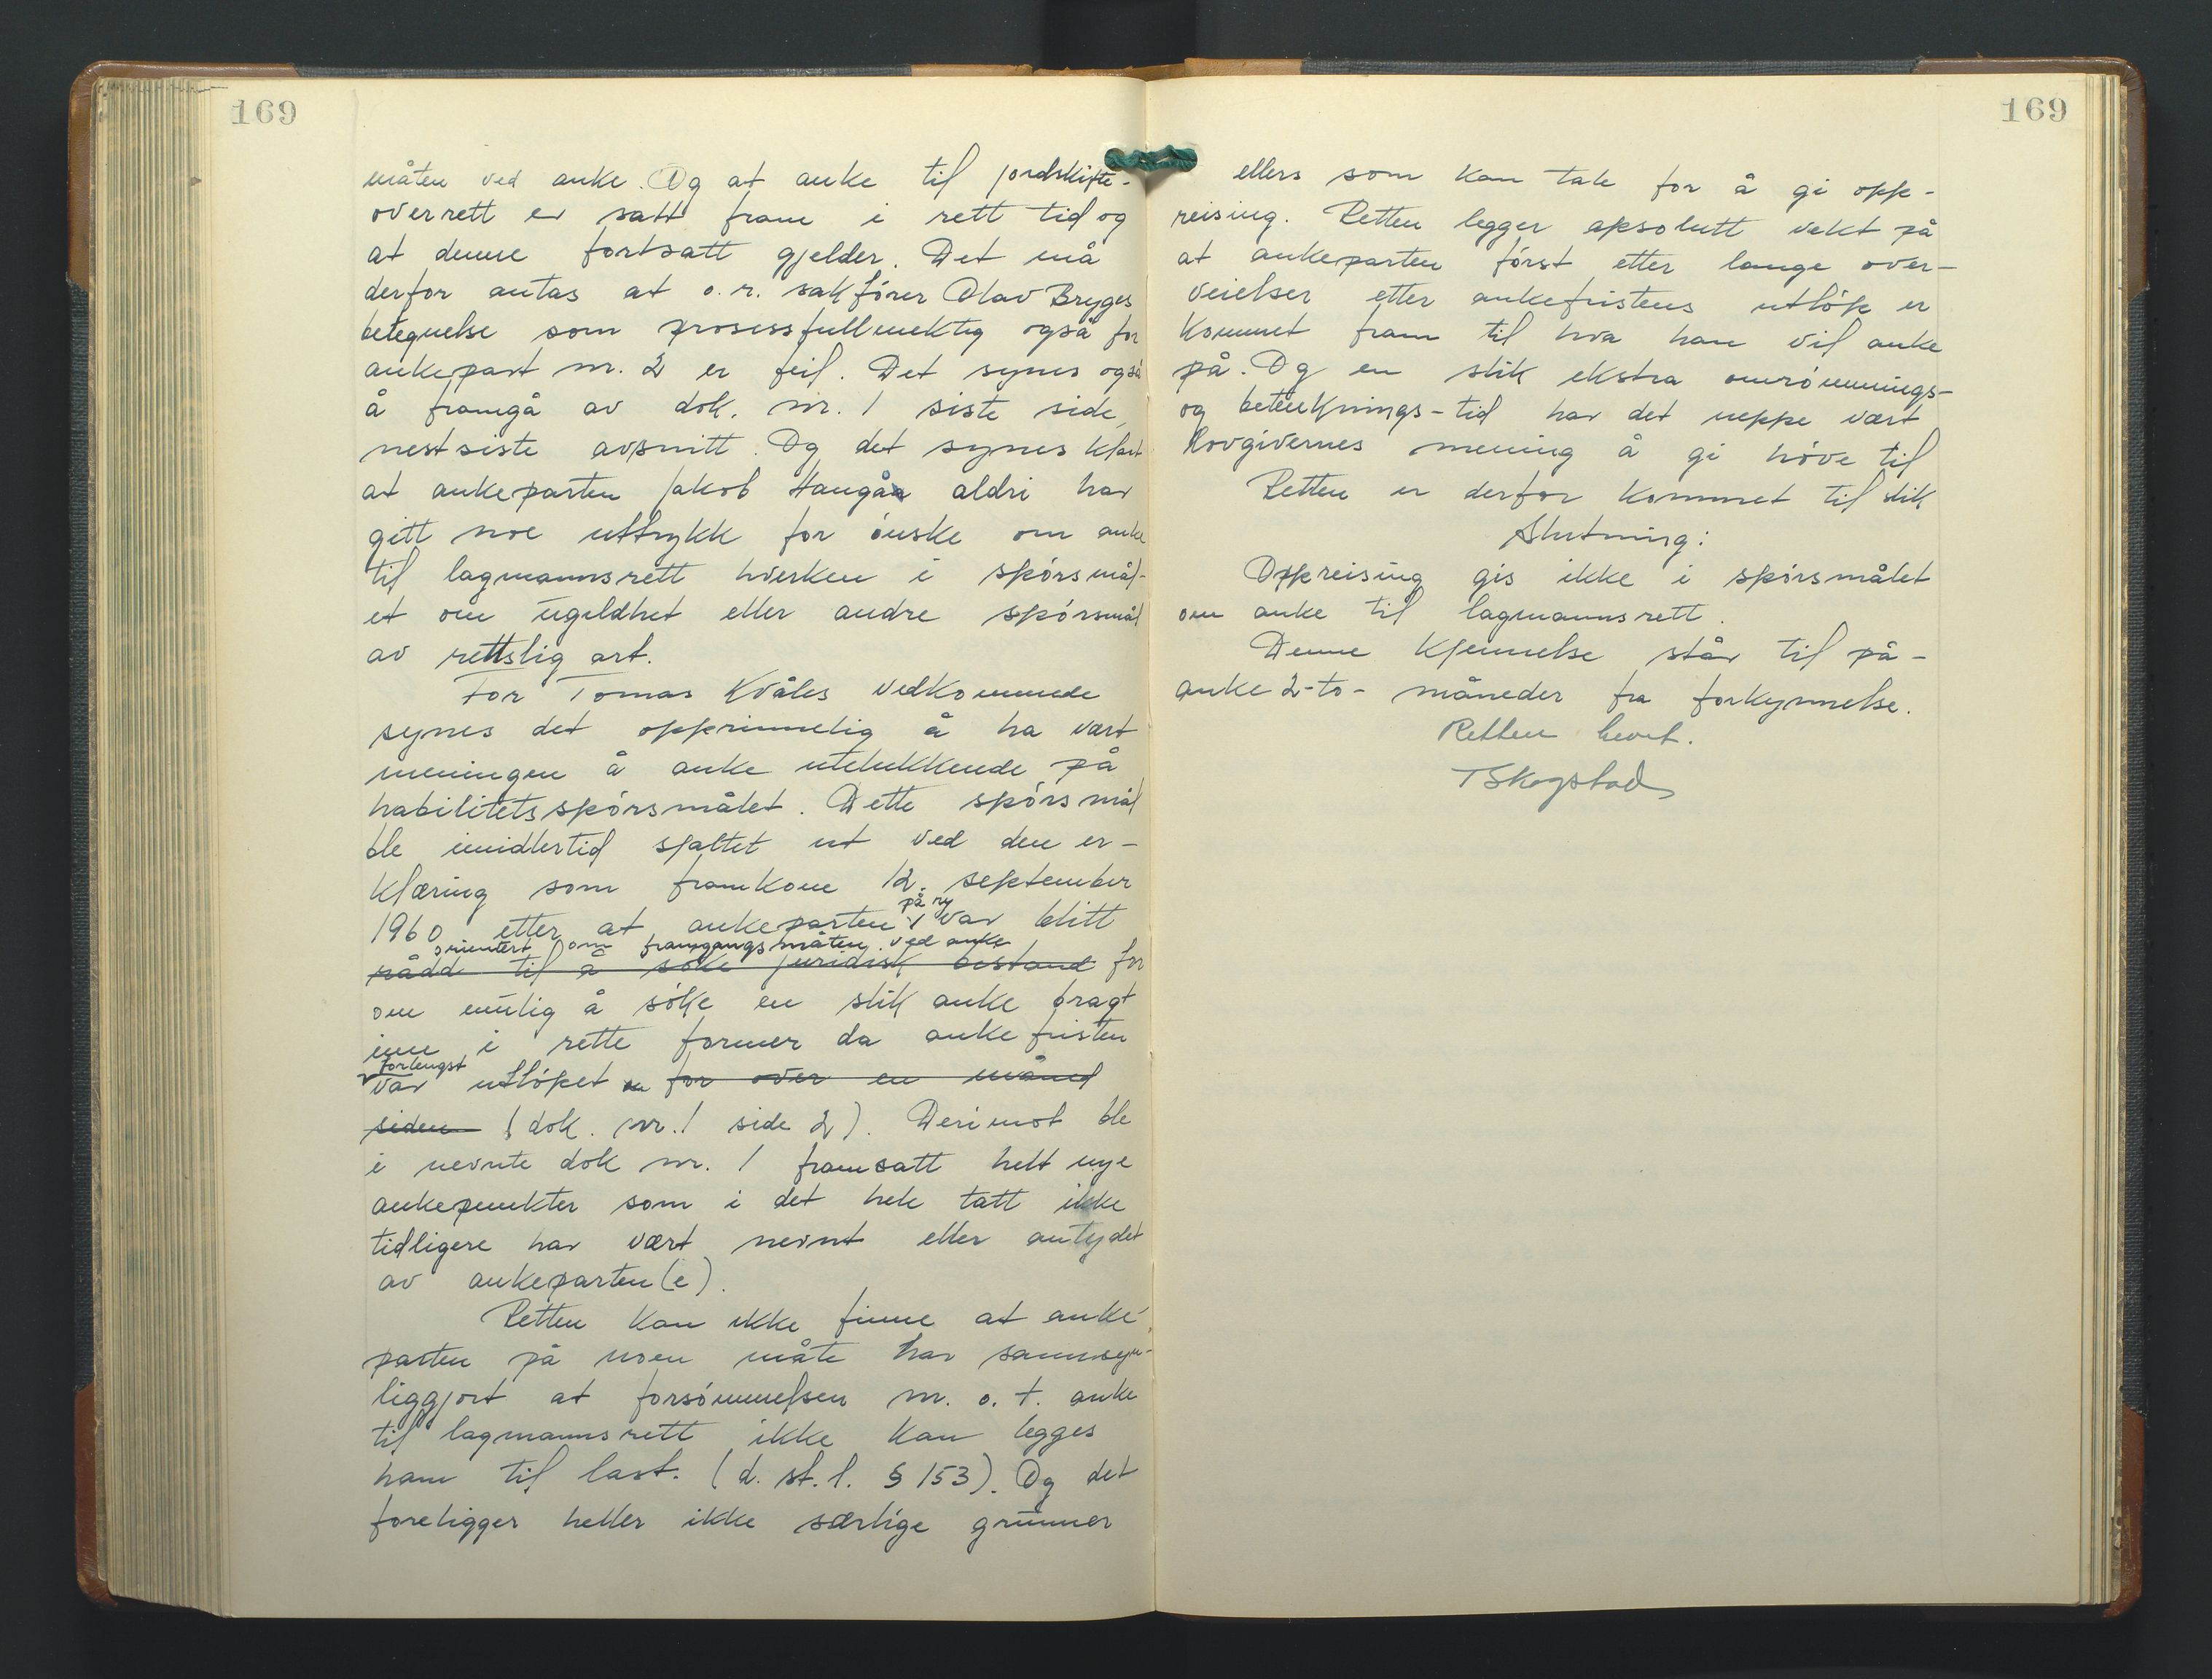 169
måten ved anke. Og at anke til jordskifte-
overrett er satt fram i rett tid og
at denne fortsatt gjelder. Det må
derfor antas at o.r. sakfører Olav Bryges
betegnelse som prosessfullmektig også for
ankepart nr. 2 er feil. Det synes også
å framgå av dok. nr. 1 siste side,
nest siste avsnitt. Og det synes klart
at ankeparten Jakob Haugåa aldri har
gitt noe uttrykk for ønske om anke
til lagmannsrett hverken i spørsmål-
et om ugildhet eller andre spørsmål
av rettslig art.
For Tomas Kvåles vedkommende
synes det opprinnelig å ha vært
meningen å anke utelukkende på
habilitetsspørsmålet. Dette spørsmål
ble imidlertid spaltet ut ved den er-
klæring som framkom 12. september
på ny
1960 etter at ankeparten var blitt
orientert om framgangsmåten ved anke
rådd til å søke juridisk bistand for
om mulig å søke en slik anke bragt
inn i rette former da ankefristen
forlengst
var utløpet for over en måned
siden (dok. nr. 1 side 2). Derimot ble
i nevnte dok nr. 1 framsatt helt nye
ankepunkter som i det hele tatt ikke
tidligere har vært nevnt eller antydet
av ankeparten(e).
Retten kan ikke finne at anke-
parten på noen måte har sannsyn-
liggjort at forsømmelsen m.o.t. anke
til lagmannsrett ikke kan legges
ham til last. (d. st. l. § 153). Og det
foreligger heller ikke særlige grunner
169
ellers som kan tale for å gi opp-
reising. Retten legger apsolutt vekt på
at ankeparten først etter lange over-
veielser etter ankefristens utløp er
kommet fram til hva han vil anke
på. Og en slik ekstra omrømmings-
og betenknings-tid har det neppe vært
lovgivernes mening å gi høve til
Retten er derfor kommet til slik
Slutning:
Oppreising gis ikke i spørsmålet
om anke til lagmannsrett.
Denne kjennelse står til på-
anke 2-to- måneder fra forkynnelse.
Retten hevet.
T Skogstad